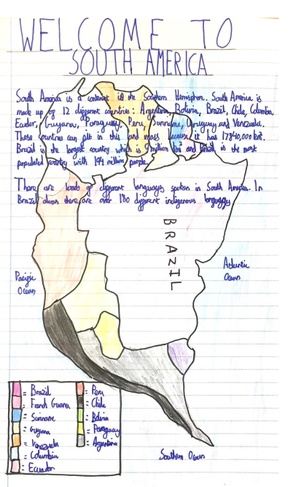 WELCOME TO
SOUTH AMERICA
South America is a continent in the Southern Hemisphere. South America is
made up of 12 different countries: Argentina, Bolivia, Brazil, Chile, Colombia,
Ecuador, Guyana, Paraguay, Peru, Suriname, Uruguay and Venezuela.
These countries all fit in this land mass it has 17,840,000 km2.
Brazil is the largest country which is million km and Brazil is the most
populated country with 194 million people.
There are loads of different languages spoken in South America. In
Brazil alone there are over 180 different indigenous languages.
BRAZIL
Pacific
Ocean
Atlantic
Ocean
Southern Ocean
= Brazil
= French Guiana
= Suriname
= Guyana
= Venezuela
= Columbia
= Ecuador
= Peru
= Chile
= Bolivia
= Paraguay
= Argentina